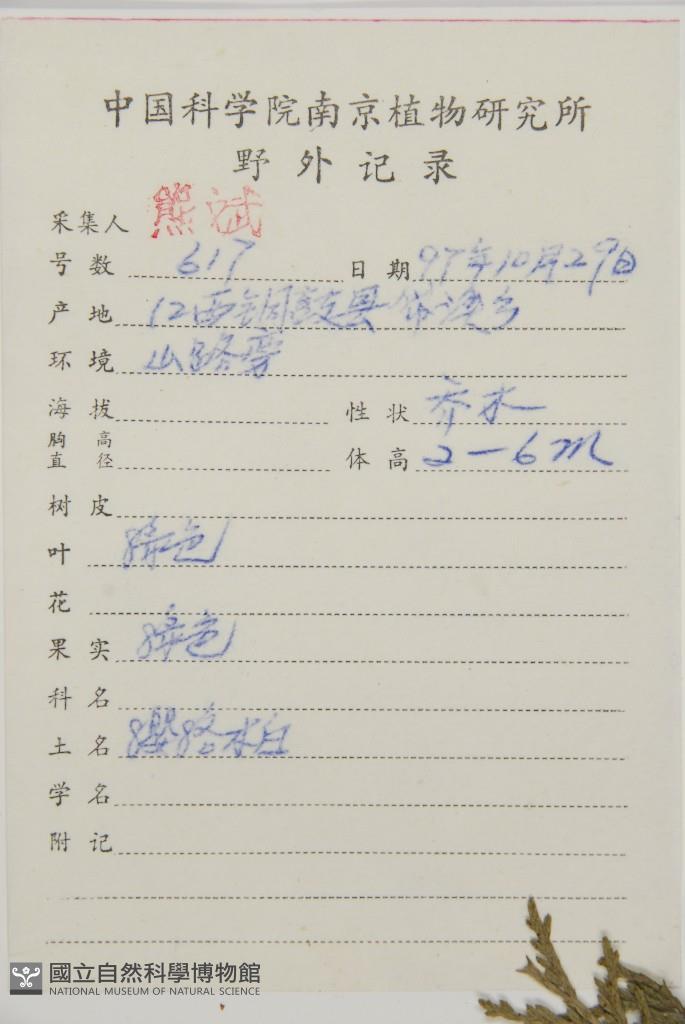 中国科学院南京植物研究所
野外记录
采集人 熊斌
号数 617 日期 97年10月29日
产地 江西铜鼓县 乡
环境 山路旁
海拔 性状 乔木
胸高直径 体高 2—6m
树皮
叶 绿色
花
果实 绿色
科名
土名 缨络水白
学名
附记
國立自然科學博物館
NATIONAL MUSEUM OF NATURAL SCIENCE